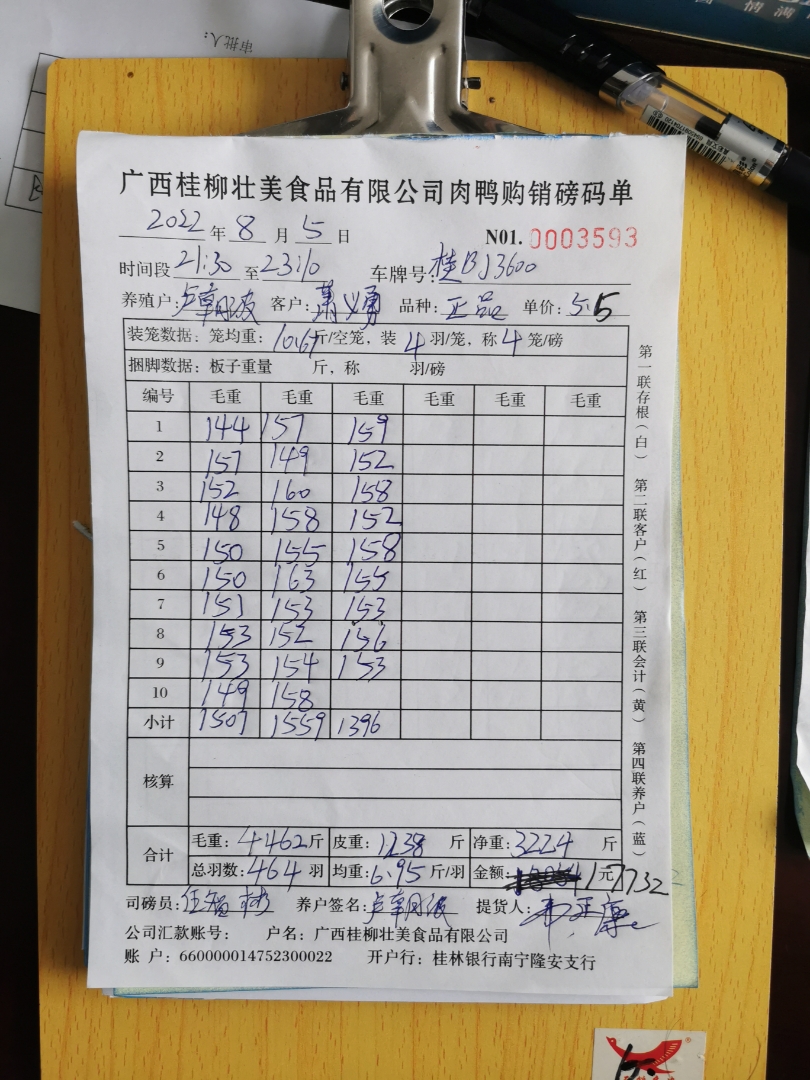 审批人:
广西桂柳壮美食品有限公司肉鸭购销磅码单
2022年8月5日 N01. 0003593
时间段21:30至23:10 车牌号:桂BJ3600
养殖户: 客户:萧义勇 品种:正品 单价:5.5
装笼数据:笼均重:10.67斤/空笼,装4羽/笼,称4笼/磅
捆脚数据:板子重量 斤,称 羽/磅
编号 毛重 毛重 毛重 毛重 毛重 毛重
1 144 157 159
2 157 149 152
3 152 160 158
4 148 158 152
5 150 155 158
6 150 163 155
7 151 153 153
8 153 152 156
9 153 154 153
10 149 158
小计 1507 1559 1396
核算
合计 毛重:4462斤 皮重:1238斤 净重:3224斤
总羽数:464羽 均重:6.95斤/羽 金额: 17732元
司磅员: 养户签名: 提货人:
公司汇款账号: 户名:广西桂柳壮美食品有限公司
账 户:660000014752300022 开户行:桂林银行南宁隆安支行
第一联存根(白) 第二联客户(红) 第三联会计(黄) 第四联养户(蓝)